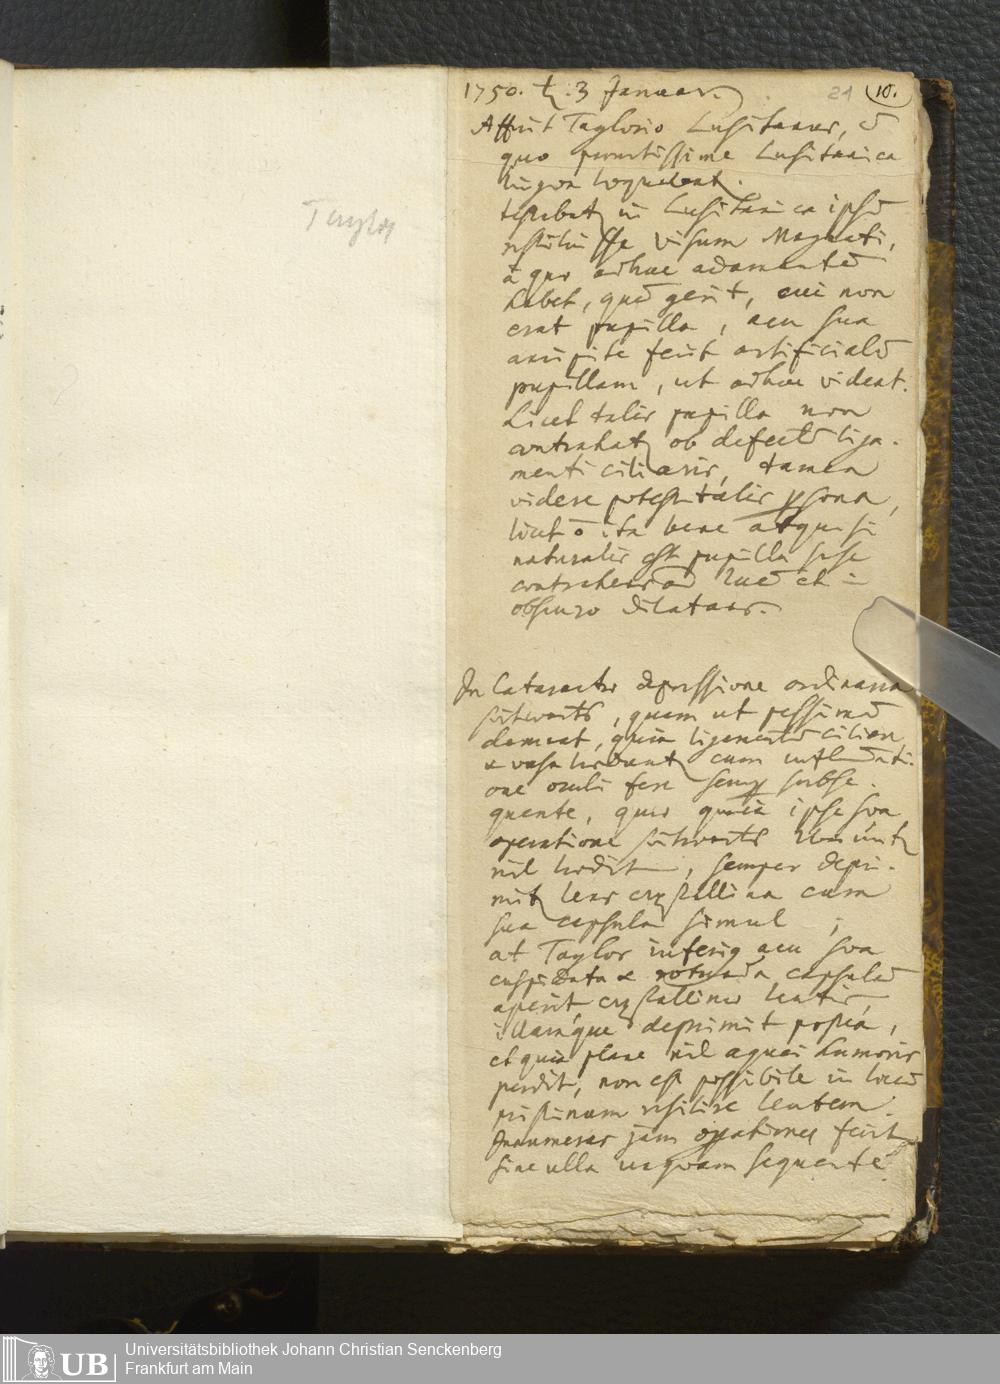 Taylor
1750. ♄. 3 Januar. 21 10.
Affuit Taylorio Lusitanus, c̄
quo promtissime Lusitanica
lingva loquebatr.
testabatr in Lusitanica ipsū
restituisse visum Magnati,
à quo adhuc adamantē
habet, quē gerit, cui non
erat pupilla, acu sua
ancipite fecit artificialē
pupillam, ut adhuc videat.
Licet talis pupilla non
contrahatr ob defectū liga-
menti ciliaris, tamen
videre potest talis psona,
licet ō ita bene atque si
naturalis est pupilla sese
contrahens ad lucē et in
obscuro dilatans.
In Cataractae depressione ordinaria
, quam ut pessimā
damnat, quia ligamentū ciliare
& vasa laeduntr cum inflammati-
one oculi fere semp subse-
quente, quo quia ipse sva
operatione
nil laedit, semper depri-
mitr lens crystallina cum
sua capsula simul;
at Taylor inferiq acu sva
cuspidata & rotunda capsulā
aperit crystallinae lentis,
illamque deprimit postea,
et quia plane nil aquei humoris
perdit, non est possibile in locū
pristinum resilire lentem.
Innumeras jam opationes fecit
sine ulla unqvam sequente
Universitätsbibliothek Johann Christian Senckenberg
Frankfurt am Main
UB